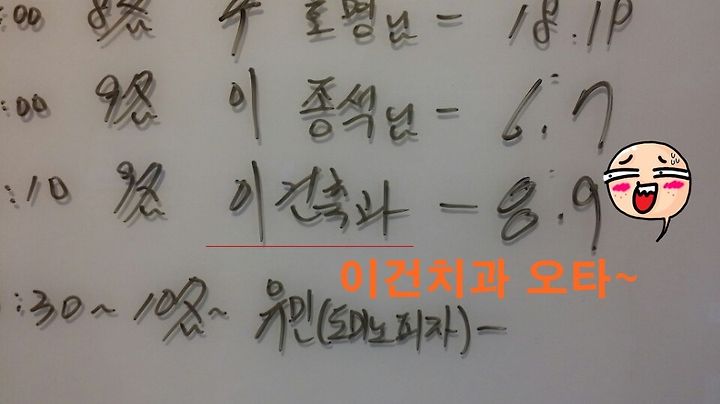 :00 8名 주 호명님 - 18.19
:00 9名 이 종석님 - 6.7
:10 9名 이건축과 - 8.9
이건치과 오타~
:30~10名~ 유민(도미노피자)-